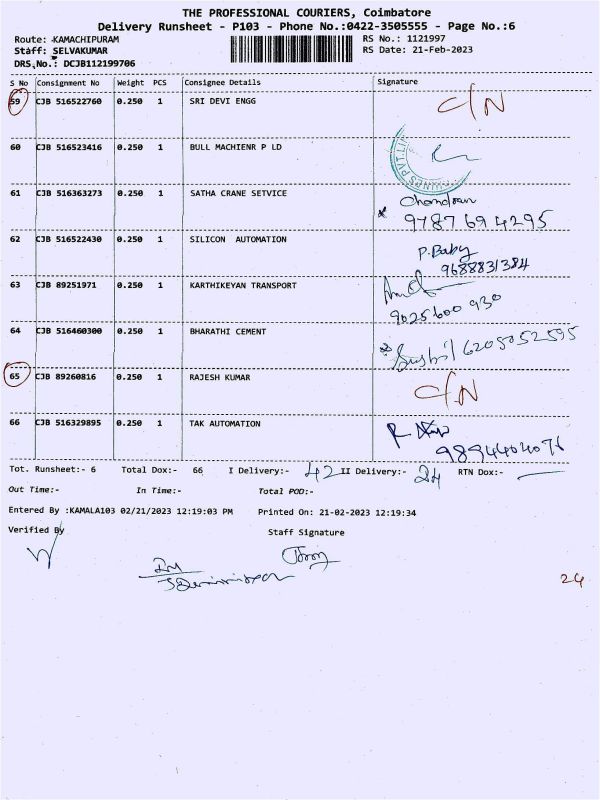 THE PROFESSIONAL COURIERS, Coimbatore
Delivery Runsheet - P103 - Phone No.:0422-3505555 - Page No.:6
Route: KAMACHIPURAM RS No.: 1121997
Staff: SELVAKUMAR RS Date: 21-Feb-2023
DRS No.: DCJB112199706
S No Consignment No Weight PCS Consignee Details Signature
59 CJB 516522760 0.250 1 SRI DEVI ENGG C/N
60 CJB 516523416 0.250 1 BULL MACHIENR P LD
61 CJB 516363273 0.250 1 SATHA CRANE SETVICE Chandran
9787694295
62 CJB 516522430 0.250 1 SILICON AUTOMATION P.Baby
9688831384
63 CJB 89251971 0.250 1 KARTHIKEYAN TRANSPORT
9025600930
64 CJB 516460300 0.250 1 BHARATHI CEMENT Sushil 6205052595
65 CJB 89260816 0.250 1 RAJESH KUMAR C/N
66 CJB 516329895 0.250 1 TAK AUTOMATION
9894404076
Tot. Runsheet:- 6 Total Dox:- 66 I Delivery:- 42 II Delivery:- 24 RTN Dox:-
Out Time:- In Time:- Total POD:-
Entered By :KAMALA103 02/21/2023 12:19:03 PM Printed On: 21-02-2023 12:19:34
Verified By Staff Signature
24